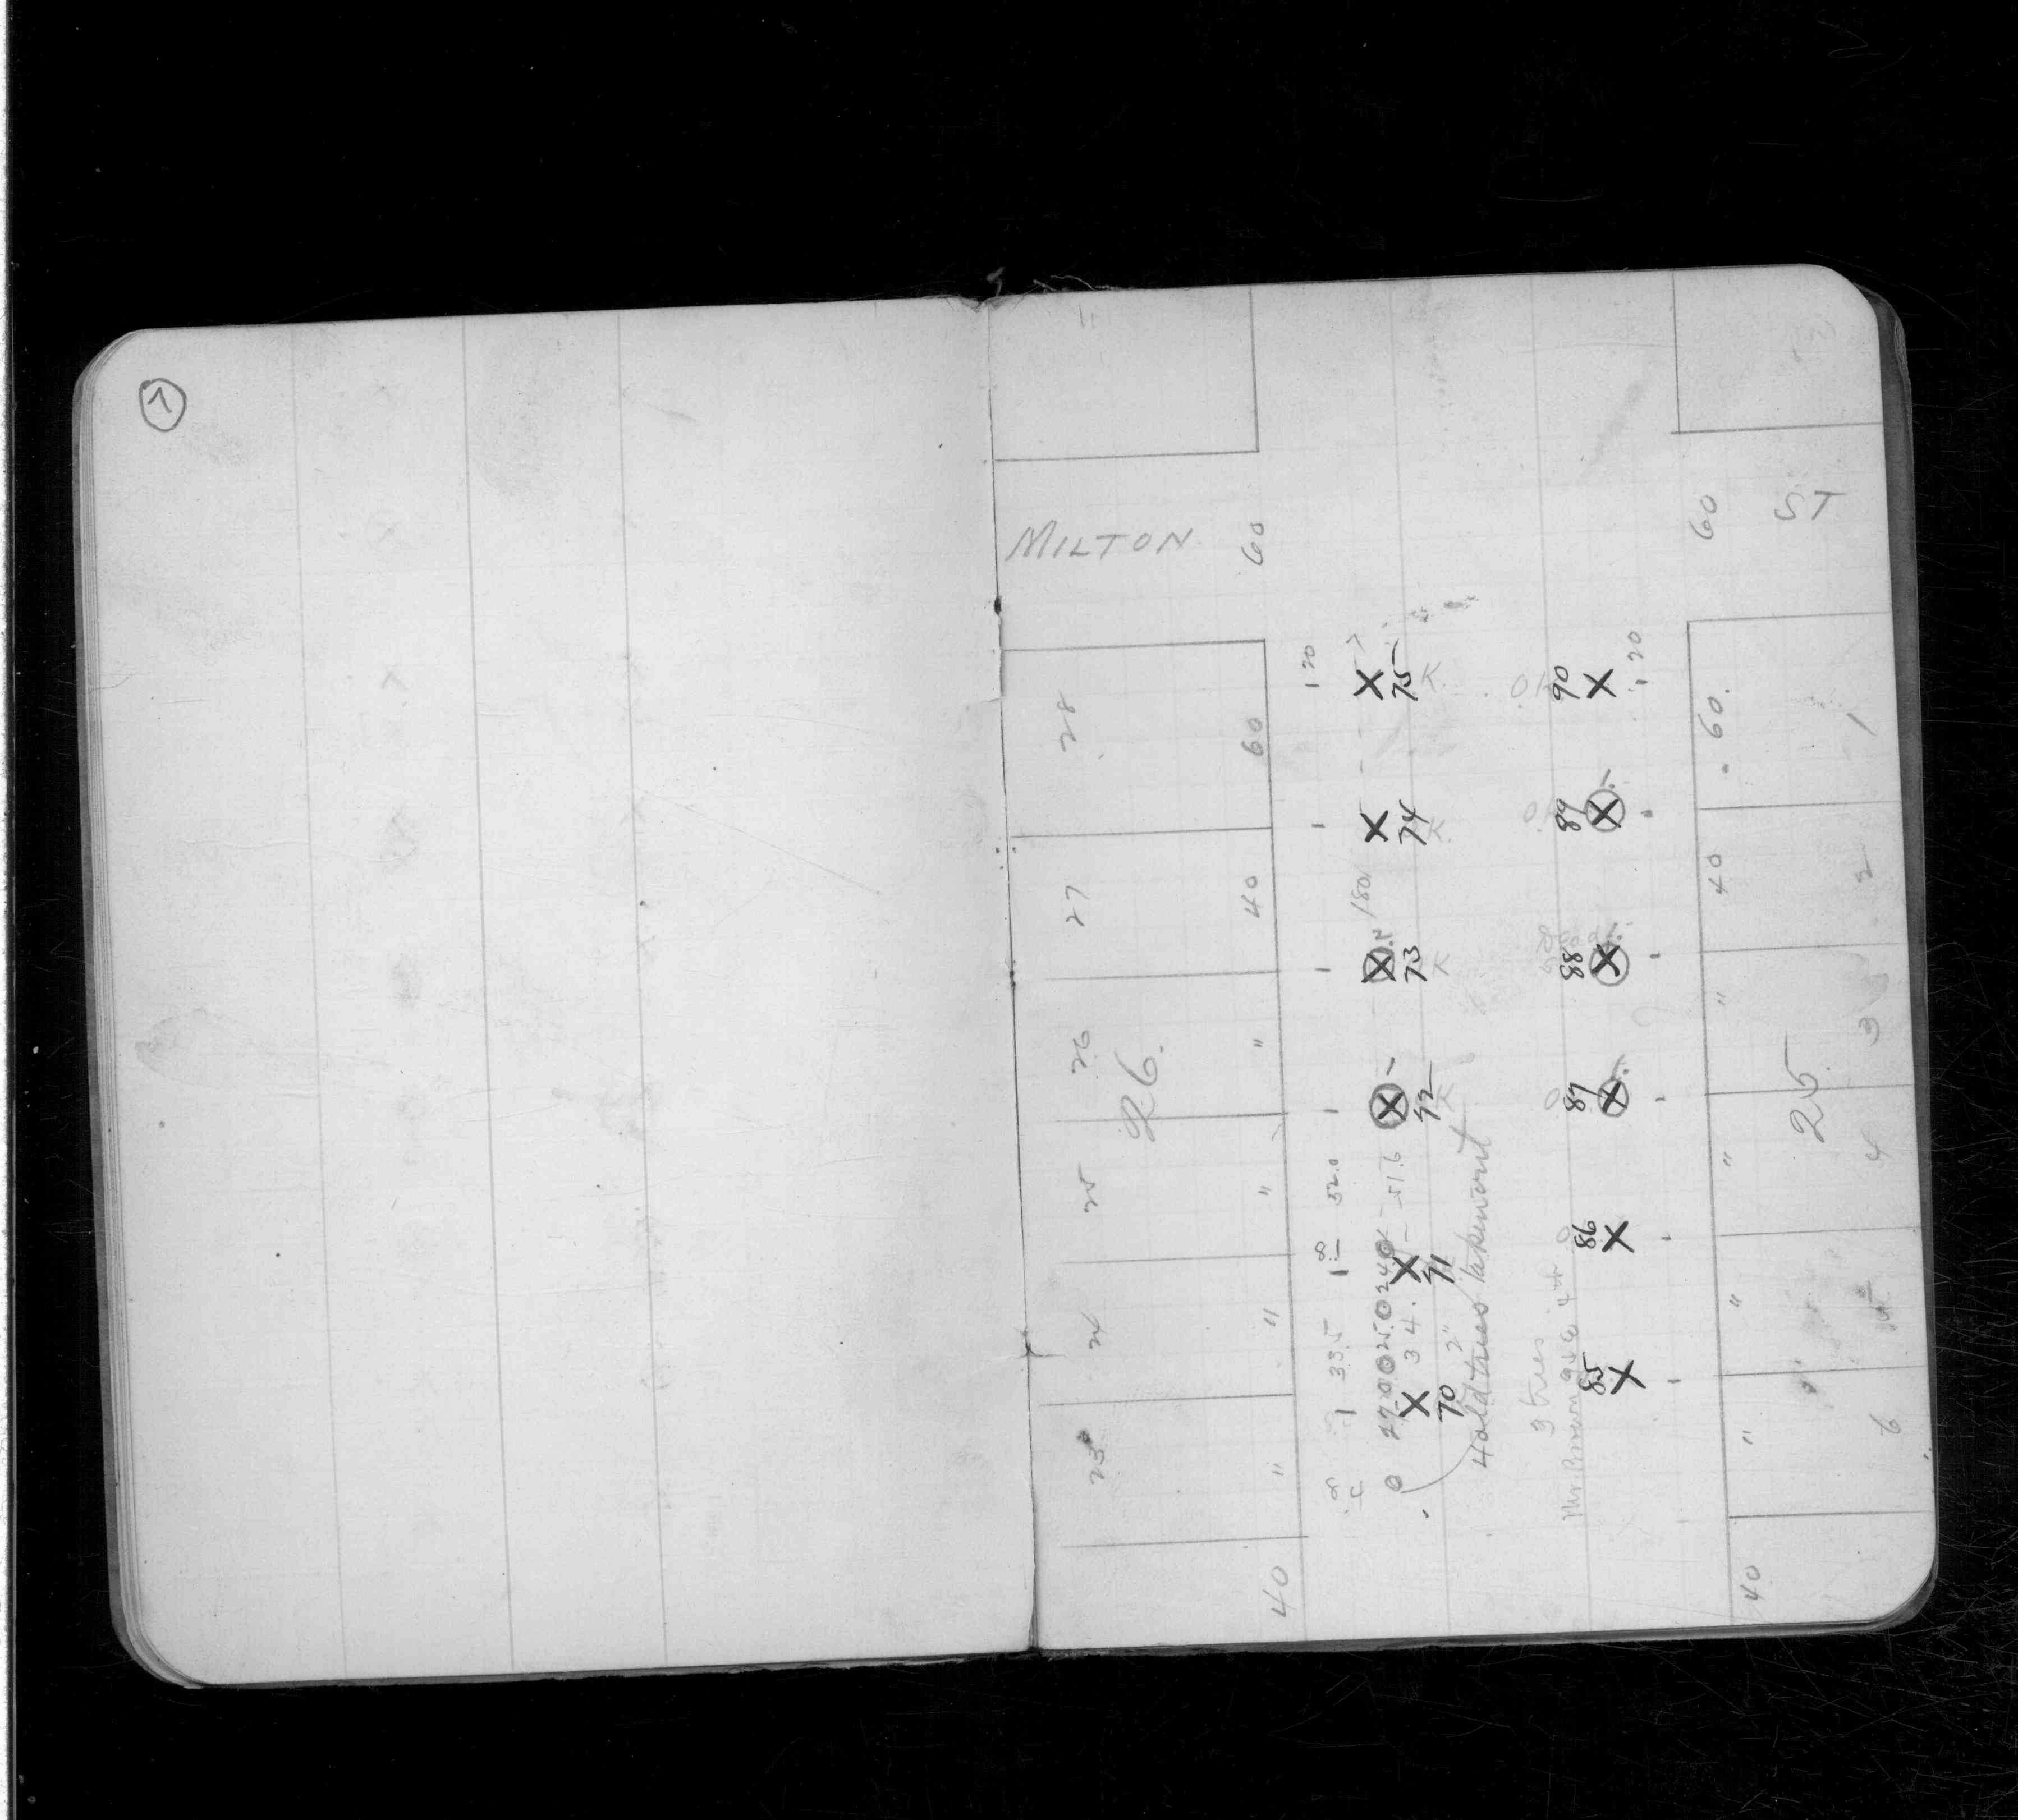 7
MILTON ST
60 60
28 27 26 25 24 23
26.
60 40 " " " " 40
120 1 1 1 1 1
52.0
33.5
75 74 73 72 71 70
180
51.6
27 0 0 25 0 24
34.
2"
4 old trees taken out
3 trees
90 89 88 87 86 85
120
60. 40 " " " " 40
25
1 2 3 4 5 6